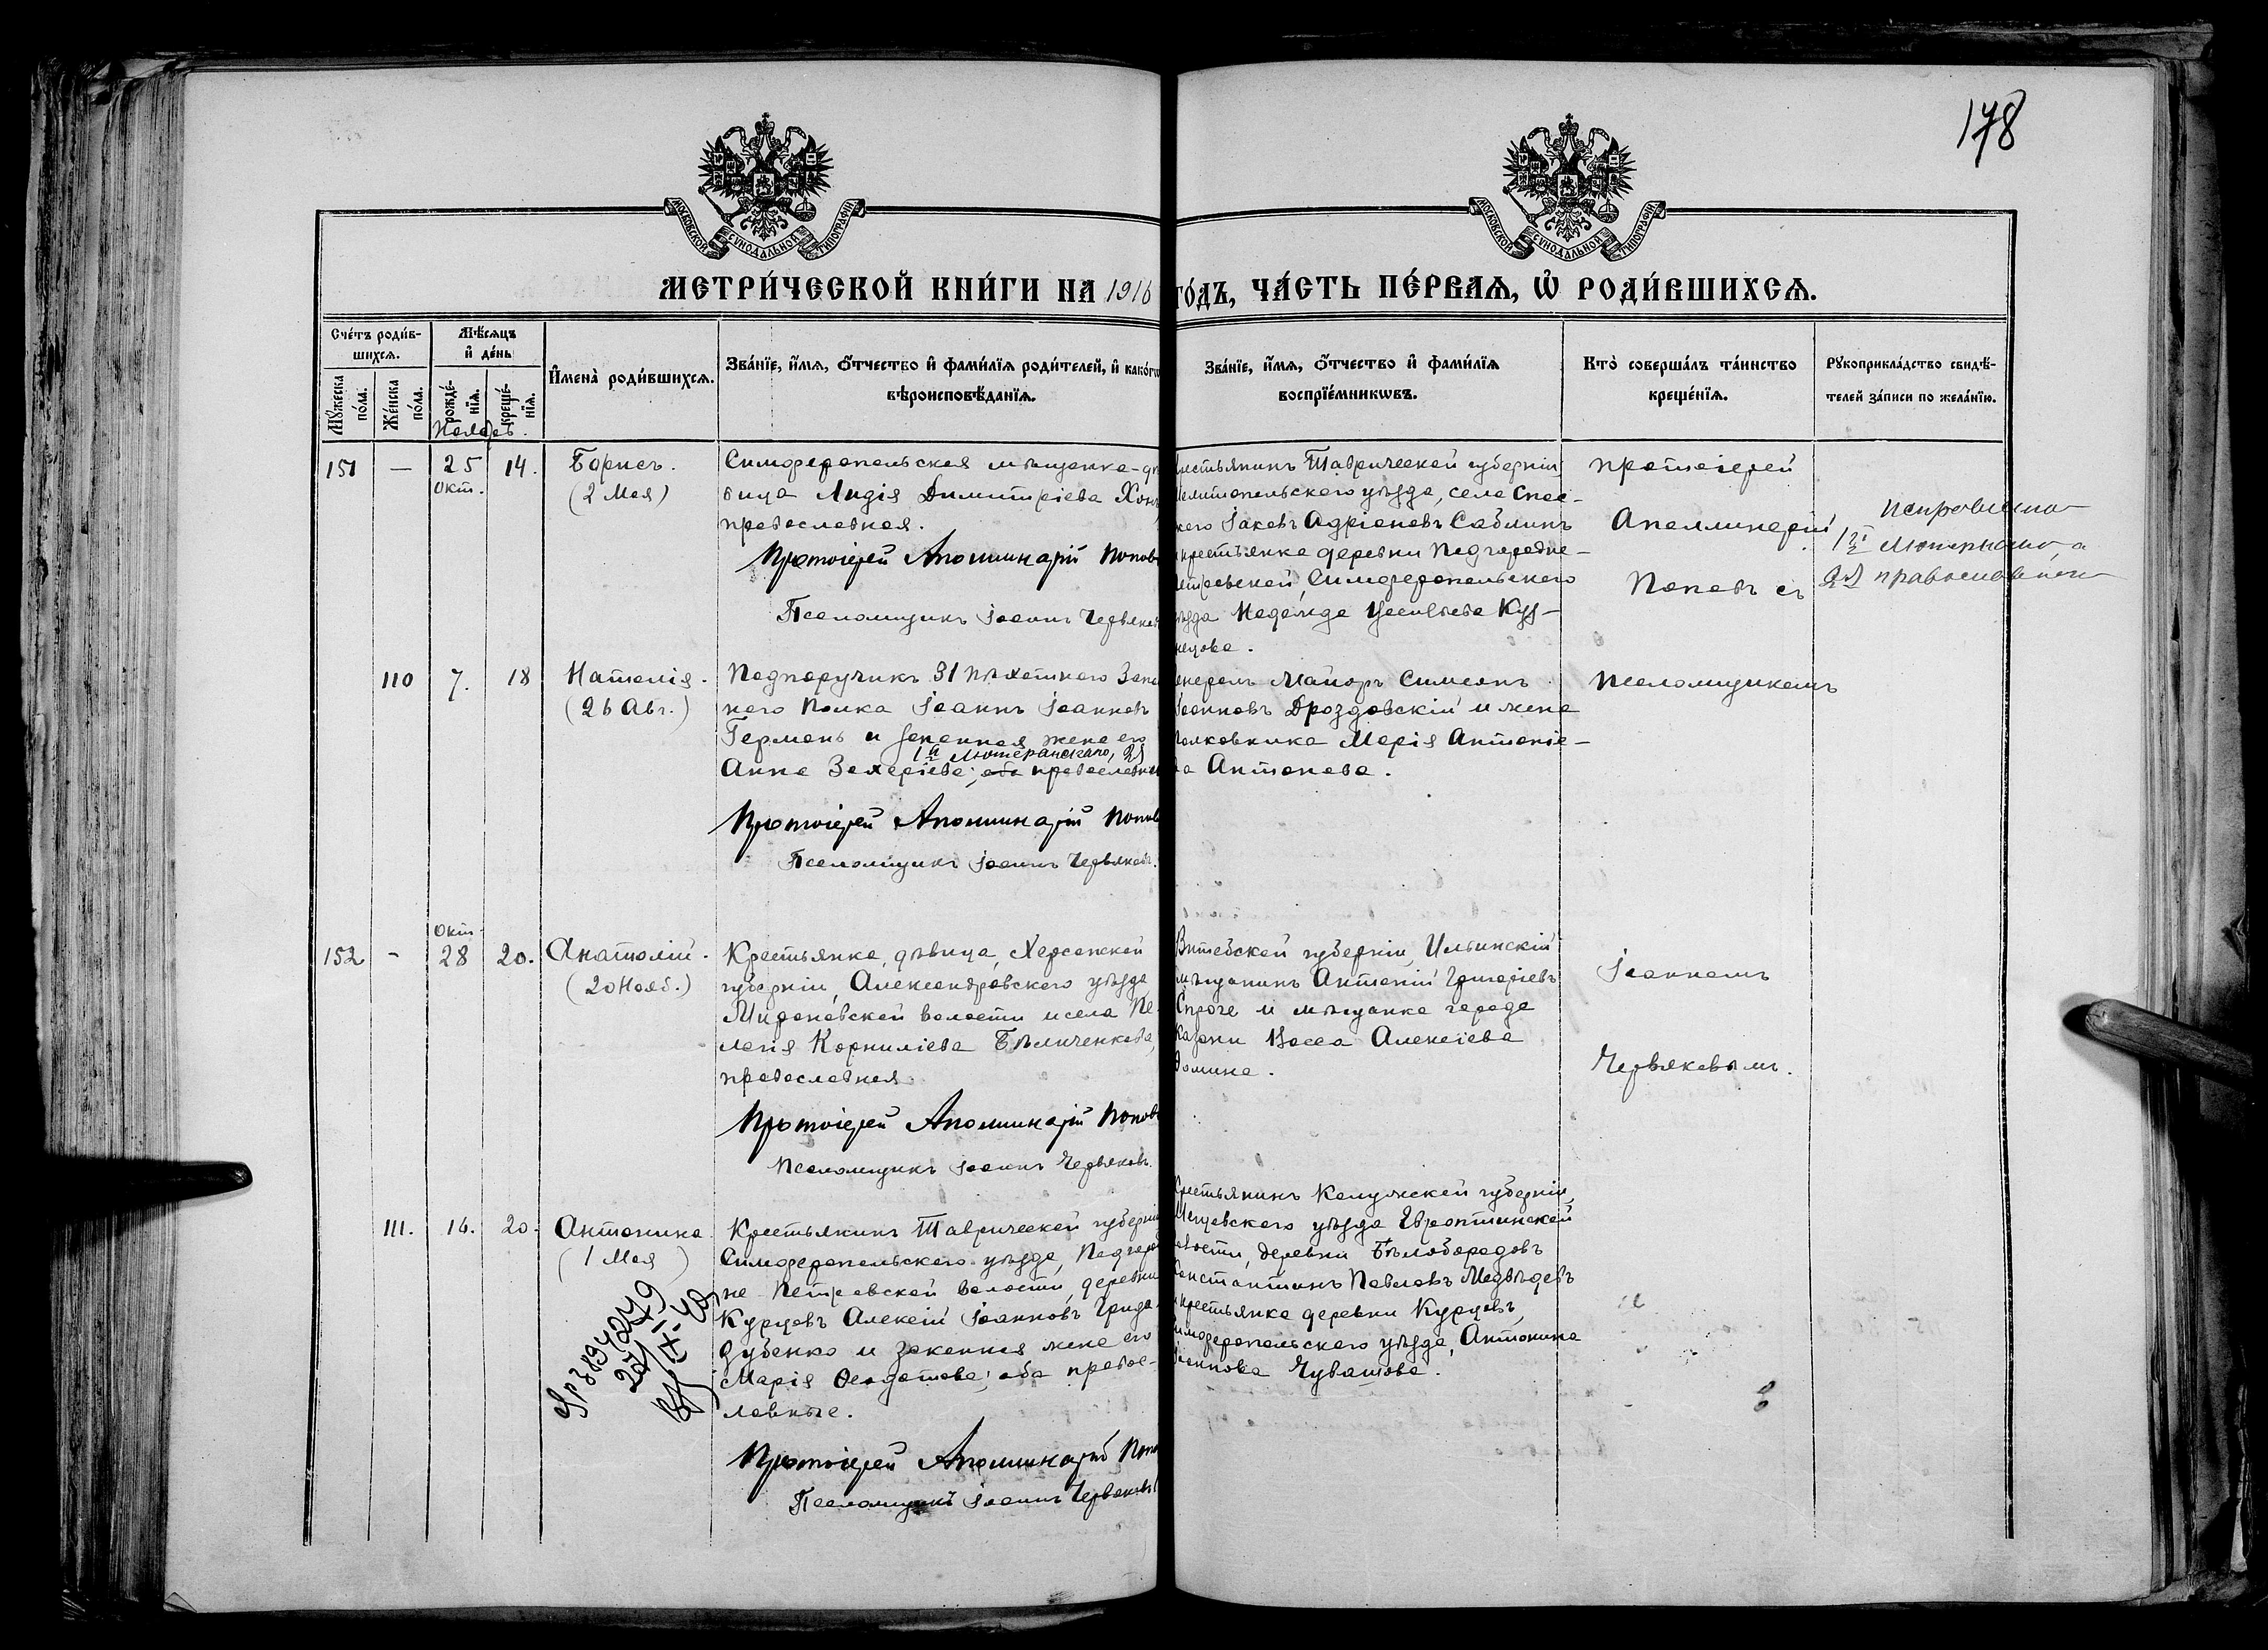 178
МОСКОВСКОЙ СѴНОДАЛЬНОЙ ТИПОГРАФІИ
МОСКОВСКОЙ СѴНОДАЛЬНОЙ ТИПОГРАФІИ
МЕТРИ́ЧЕСКОЙ КНИ́ГИ НА 1916 ГО́ДЪ, ЧА́СТЬ ПЕ́РВАЯ, Ѡ҆ РОДИ́ВШИХСЯ.
Сче́тъ роди́в-
шихся.
Мꙋ́жеска по́ла.
Же́нска по́ла.
Мѣ́сяцъ
и҆ де́нь
рожде́-
нїя.
креще́-
нїя.
Ноябрь.
И҆мена̀ роди́вшихся.
Зва́нїе, и҆́мя, ѻ҆́тчество и҆ фами́лїя роди́телей, и҆ како́гѡ
вѣроисповѣ́данїя.
Зва́нїе, и҆́мя, ѻ҆́тчество и҆ фами́лїя
воспрїе́мникѡвъ.
Кто̀ соверша́лъ та́инство
креще́нїя.
Рꙋкоприкла́дство свидѣ́-
телей за́писи по жела́нїю.
151 — 25 14.
Окт.
Борисъ.
(2 Мая)
Симферопольская мѣщанка-дѣ
вица Лидія Димитріева Хон
православная.
Протоіерей Аполлинарій Попов
Псаломщикъ Іоаннъ Червяков
рестьянинъ Таврической губерніи
Мелитопольскаго уѣзда, села Спас-
каго Іаковъ Адріановъ Саблинъ
и крестьянка деревни Подгородне-
Петровской, Симферопольскаго
уѣзда Надежда Васильева Куз-
нецова.
протоіерей
Аполлинарій
Поповъ съ
псаломщикомъ
Іоанномъ
Червяковымъ.
исправлено
1й Лютеранскаго, а
2я православнаго
110 7. 18
Наталія.
(26 Авг.)
Подпоручикъ 31 пѣхотнаго Запас
наго Полка Іоаннъ Іоанновъ
Германъ и законная жена его
1й Лютеранскаго, 2я
Анна Захаріева; оба православн
Протоіерей Аполлинарій Попов
Псаломщикъ Іоаннъ Червяковъ.
енералъ Маіоръ Симеонъ
Іоанновъ Дроздовскій и жена
полковника Марія Антоніе-
ва Антонова.
Окт.
152 - 28 20.
Анатолій.
(20 Нояб.)
Крестьянка, дѣвица, Херсонской
губерніи, Александровскаго уѣзда
Мироновской волости и села Пе-
лагія Корниліева Бѣличенкова,
православная
Протоіерей Аполлинарій Попов
Псаломщикъ Іоаннъ Червяковъ.
Витебской губерніи, Ильинскій
мѣщанинъ Антоній Григоріевъ
Спроге и мѣщанка города
Казани Васса Алексіева
Фомина.
111. 16. 20.
Антонина
(1 Мая)
Крестьянинъ Таврической губерніи
Симферопольскаго уѣзда, Подгород
не-Петровской волости, деревни
Курцовъ Алексій Іоанновъ Грида
Дубенко и законная жена его
Марія Феодотова; оба право-
лавные.
Протоіерей Аполлинарій Попо
Псаломщикъ Іоаннъ Червяковъ
рестьянинъ Калужской губерніи,
Мещовскаго уѣзда
волости, деревни Бѣлобородовъ
Константинъ Павловъ Медвѣдевъ
и крестьянка деревни Курцовъ,
имферопольскаго уѣзда, Антонина
Іоаннова Чувашова.